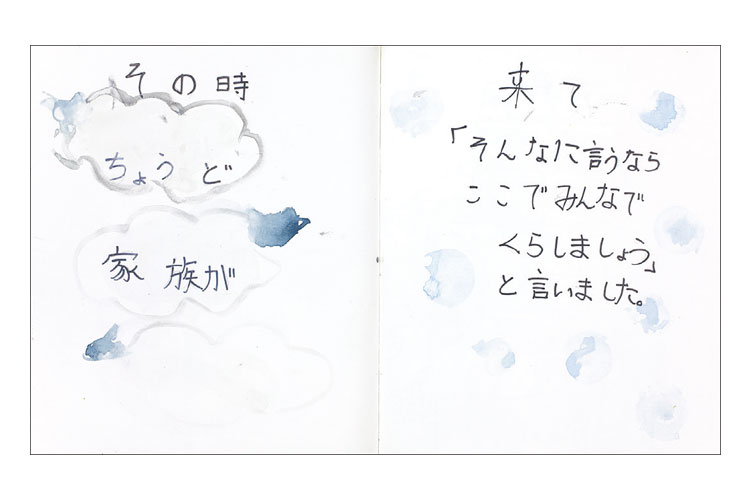 その時
ちょうど
家族が
来て
「そんなに言うなら
ここでみんなで
くらしましょう」
と言いました。